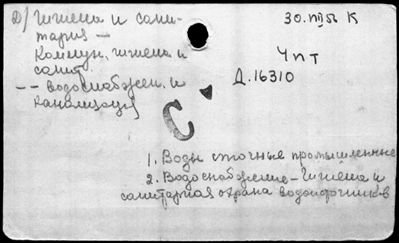 Д/ Гигиена и сани-
тария —
Коммун. гигиена и
санит.
-- водоснабжен. и
канализация
30. К
Ч п т
Д.16310
С
1. Воды сточные промышленные
2. Водоснабжение - Гигиена и
санитарная охрана водоисточников